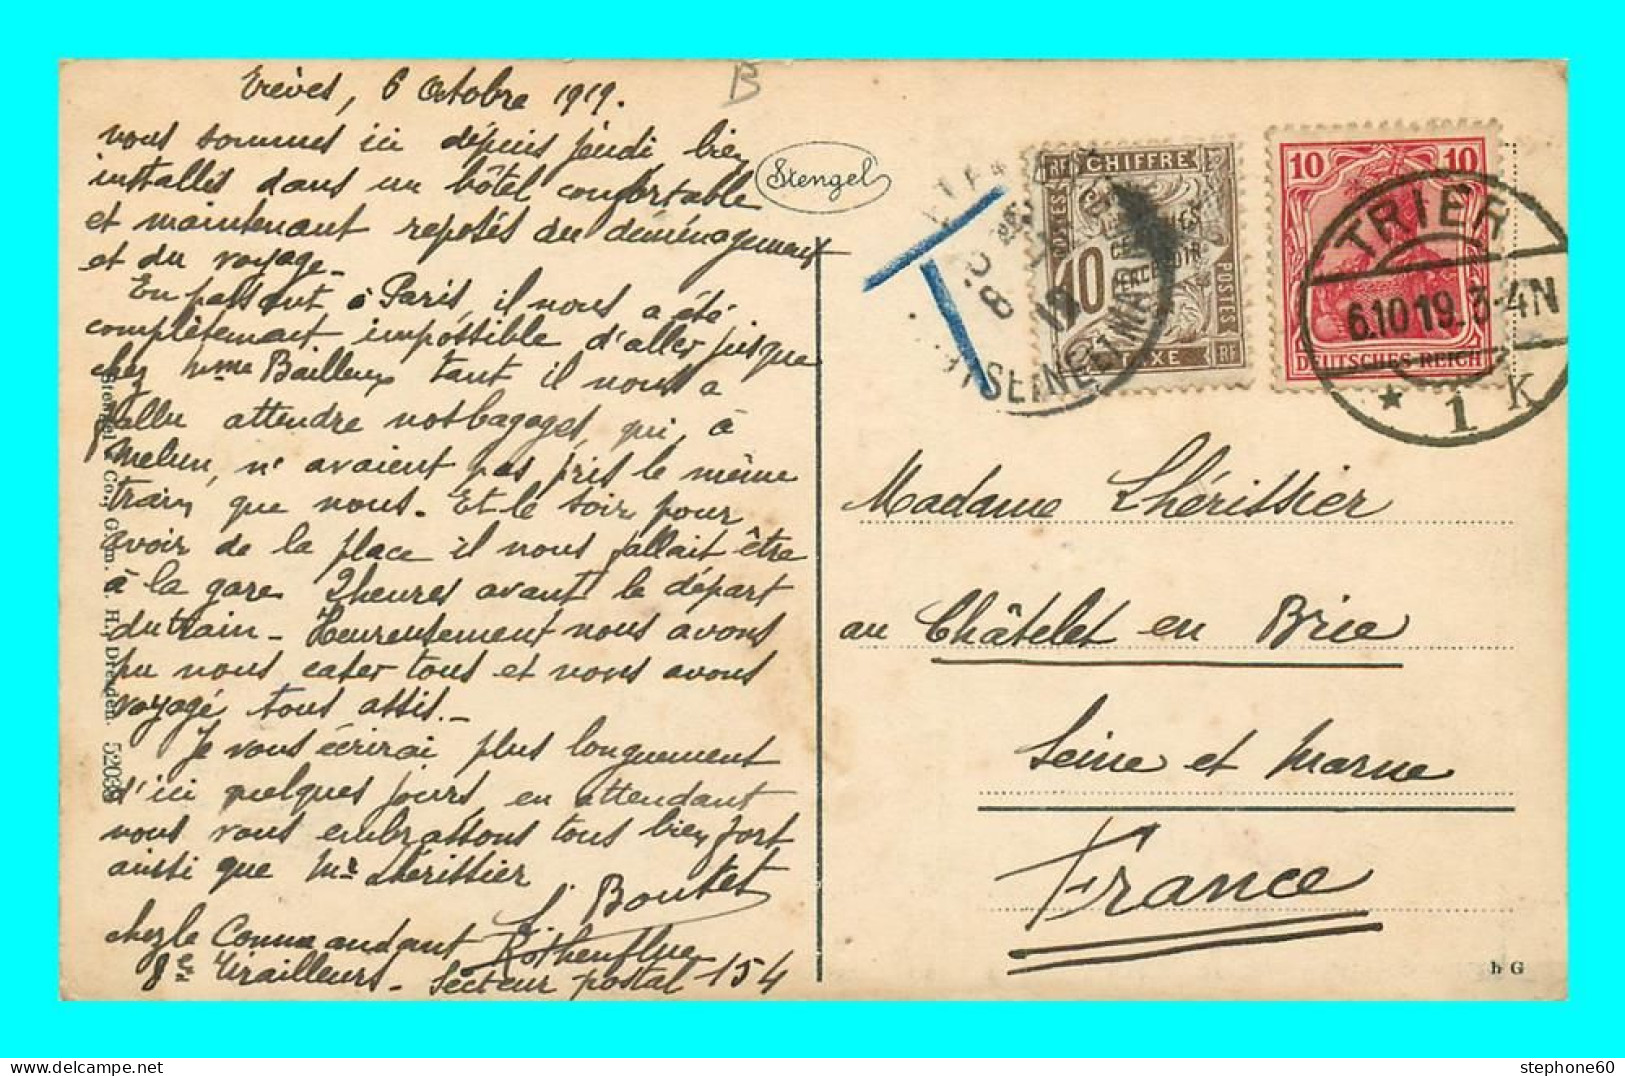 Trèves, 6 Octobre 1919.
B
nous sommes ici dépuis jeudi bien
installés dans un hôtel confortable
et maintenant reposés du déménagement
et du voyage.
En passant à Paris, il nous a été
complètement impossible d'aller jusque
chez Mme Bailleux tant il nous a
fallu attendre nos bagages qui, à
Melun, n'avaient pas pris le même
train que nous. Et le soir pour
avoir de la place il nous fallait être
à la gare 2 heures avant le départ
du train. Heureusement nous avons
pu nous caser tous et nous avons
voyagé tous assis.
Je vous écrirai plus longuement
d'ici quelques jours, en attendant
nous vous embrassons tous bien fort
ainsi que Mr Lhérissier
Boutet
chez le Commandant Rothenflue
8e Tirailleurs. Secteur postal 154
Stengel & Co., G. m. b. H., Dresden. 5203
Stengel
CHIFFRE
RF
POSTES
10
CENTIMES
À PERCEVOIR
POSTES
TAXE
RF
8
19
SEINE ET MARNE
10 10
DEUTSCHES REICH
TRIER
6.10 19. 3-4N
* 1 K
Madame Lhérissier
au Châtelet en Brie
Seine et Marne
France
h G
stephone60